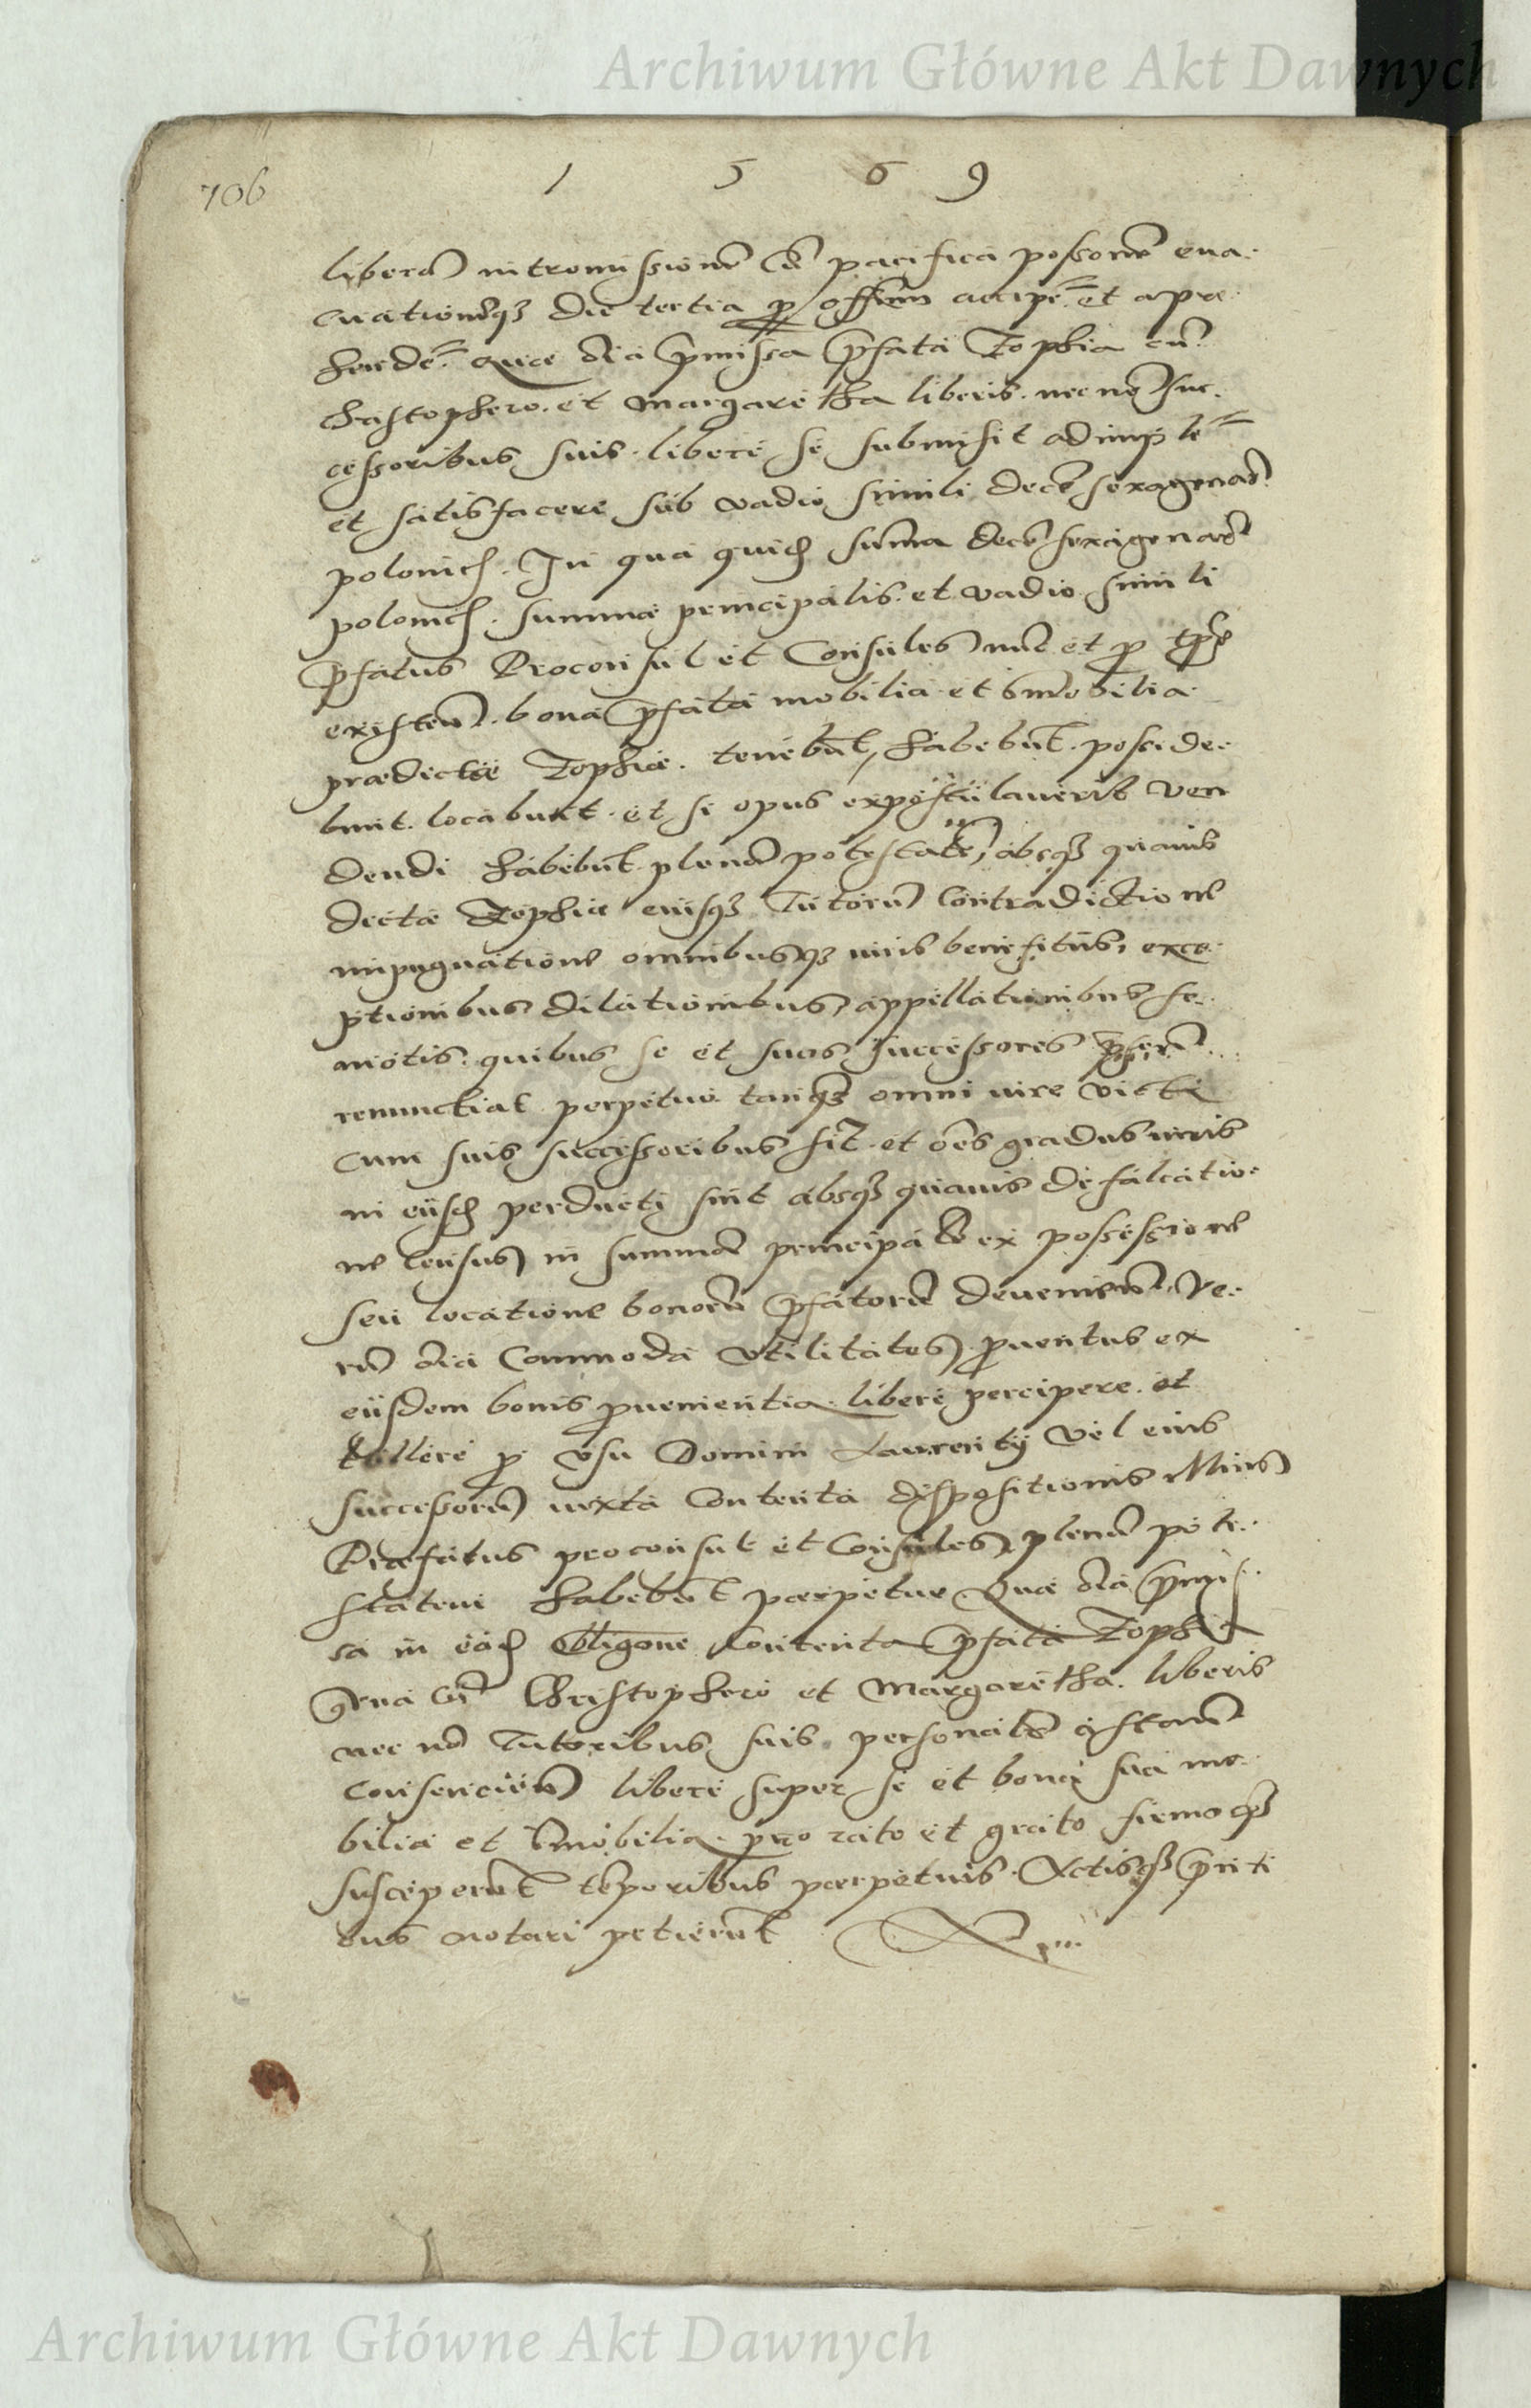 Archiwum Główne Akt Dawnych
706
1 5 6 9
liberam intromissionē cū pacifica possonē eua-
cuationēq3 die tertia p offium accipe et apre
hende. Quae oīa p̄missa p̄fata Zophia cū
Christophero et Margaretha liberis nec nō suc-
cessoribus suis libere se submisit adimple
et satisfacere sub vadio simili decē sexagenarū
polonich. In qua quidē suma decē sexagenarū
polonich. summae principalis et vadio simili
p̄fatus Proconsul et Consules nūc et p tp̄e
existen. bona p̄fata mobilia et īmobilia
praedictae Zophiae tenebūt, habebūt posside-
bunt locabunt et si opus expostulauerit ven
dendi habebūt plenā potestatē, absq3 quauis
dictae Zophiae eiusq3 Tutorū contradictione
impugnatione omnibusq3 iuris benefitiis, exce-
ptionibus dilationibus, appellationibus se-
motis quibus se et suos successores
renunctiat perpetuo tanq3 omni iure victi
cum suis successoribus sīt et oēs gradus iuris
in eiisdē perducti sint absq3 quauis defalcatio-
ne census in summā principalē ex possessione
seu locatione bonorū p̄fatorū deueniē. Ve-
rū oīa commoda vtilitates prouentus ex
eiisdem bonis prouenientia libere percipere et
tollere p vsu Domini Laurentij vel eius
successorū iuxta contenta dispositionis illius
Praefatus proconsul et Consules plenā pote-
statem habebūt perpetue. Quae oīa p̄mis-
sa in eadē Obligone contenta p̄fata Zophia
cū Christophero et Margaretha liberis
nec nō Tutoribus suis personalē
consencien libere super se et bona sua mo-
bilia et īmobilia pro rato et grato firmoq3
susceperūt tēporibus perpetuis. Actisq3 p̄nti
bus notari petierūt
Archiwum Główne Akt Dawnych